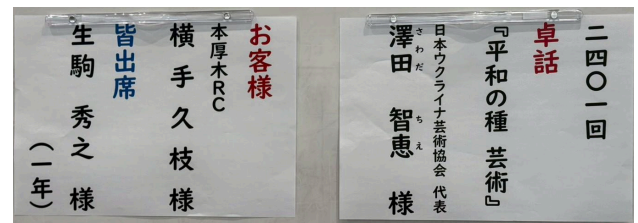 二四〇一回
卓話
『平和の種 芸術』
日本ウクライナ芸術協会 代表
澤田 智恵 様
さわだ ちえ
お客様
本厚木RC
横手久枝様
皆出席
生駒 秀之 様
(一年)